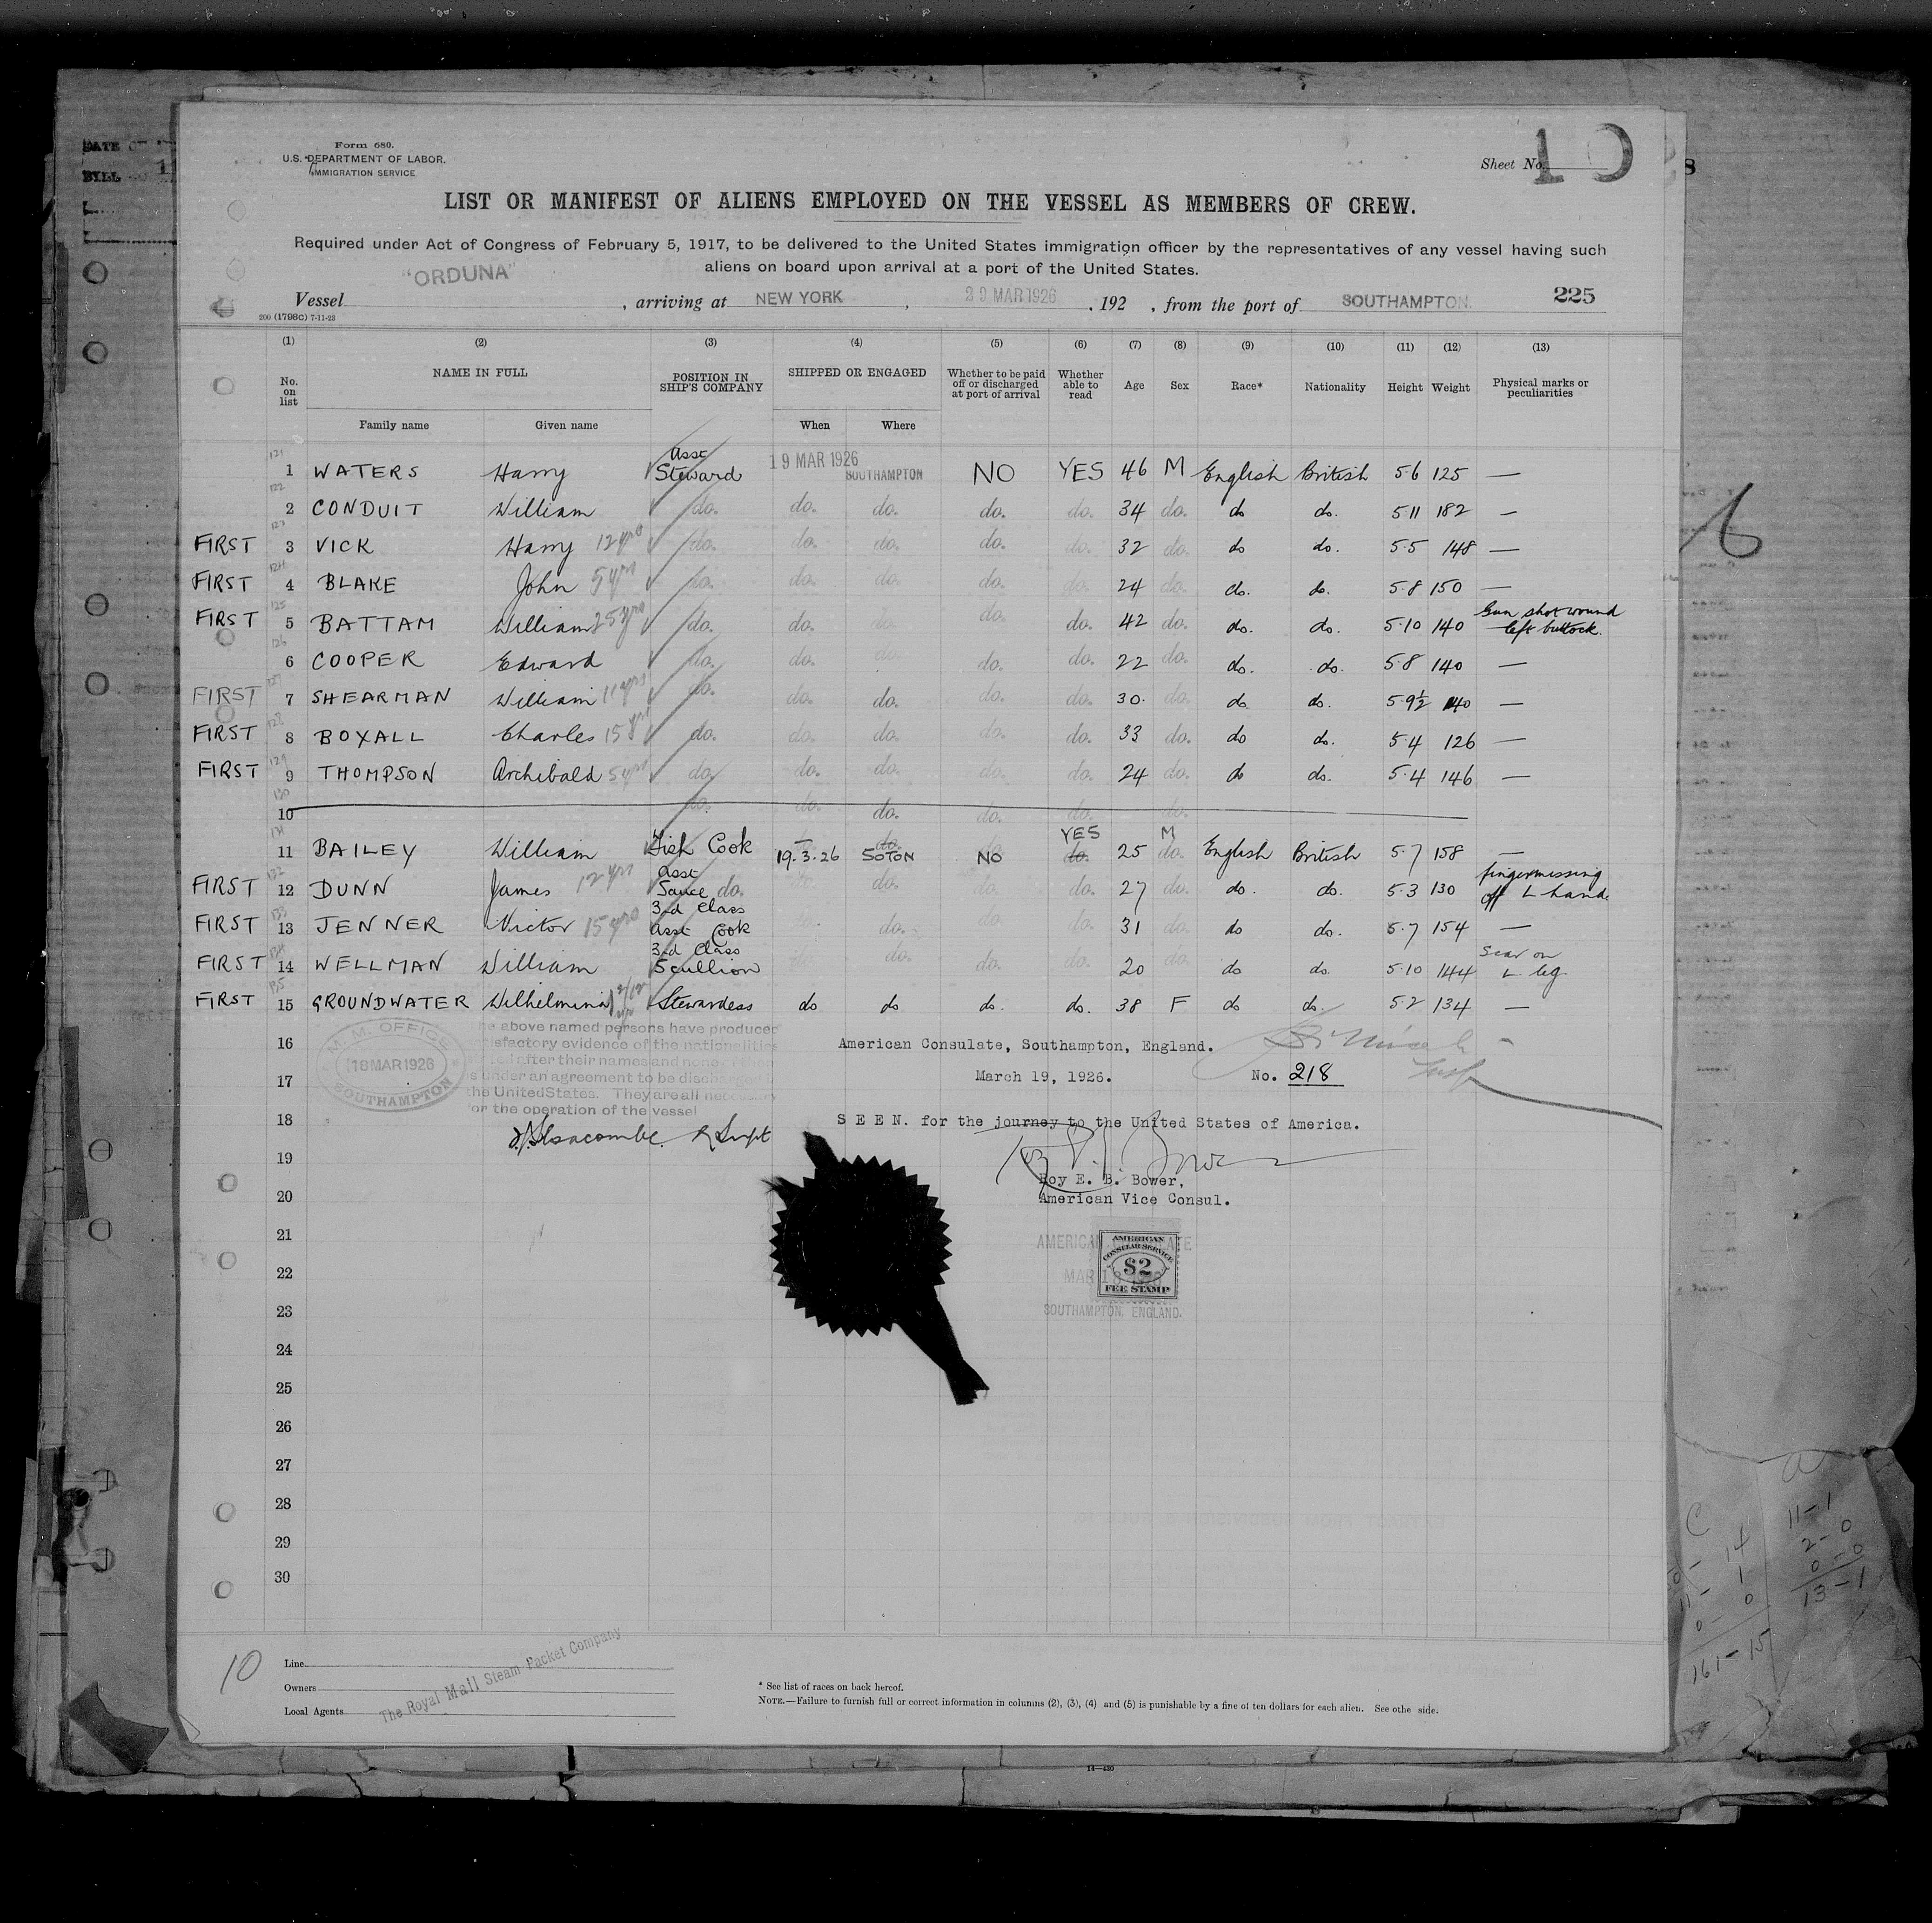 DATE
BILL
Form 680.
U.S. DEPARTMENT OF LABOR.
IMMIGRATION SERVICE
Sheet No. 10
LIST OR MANIFEST OF ALIENS EMPLOYED ON THE VESSEL AS MEMBERS OF CREW.
Required under Act of Congress of February 5, 1917, to be delivered to the United States immigration officer by the representatives of any vessel having such
aliens on board upon arrival at a port of the United States.
Vessel "ORDUNA", arriving at NEW YORK, 29 MAR 1926, 192 , from the port of SOUTHAMPTON. 225
200 (1798c) 7-11-23
(1) (2) (3) (4) (5) (6) (7) (8) (9) (10) (11) (12) (13)
No. on list NAME IN FULL POSITION IN SHIP'S COMPANY SHIPPED OR ENGAGED Whether to be paid off or discharged at port of arrival Whether able to read Age Sex Race* Nationality Height Weight Physical marks or peculiarities
Family name Given name When Where
121 1 WATERS Harry Asst Steward 19 MAR 1926 SOUTHAMPTON NO YES 46 M English British 5.6 125 —
122 2 CONDUIT William do. do. do. do. do. 34 do. do do. 5 11 182 —
FIRST 123 3 VICK Harry 12 yrs do. do. do. do. do. 32 do. do do. 5.5 148 —
FIRST 124 4 BLAKE John 5 yrs do. do. do. do. do. 24 do. do. do. 5.8 150 —
FIRST 125 5 BATTAM William 25 yrs do. do. do. do. do. 42 do. do. do. 5.10 140 Gun shot wound left buttock.
126 6 COOPER Edward do. do. do. do. do. 22 do. do. do. 5.8 140 —
FIRST 127 7 SHEARMAN William 11 yrs do. do. do. do. do. 30. do. do do. 5.9½ 140 —
FIRST 128 8 BOXALL Charles 15 yrs do. do. do. do. do. 33 do. do do. 5.4 126 —
FIRST 129 9 THOMPSON Archibald 5 yrs do. do. do. do. do. 24 do. do do. 5.4 146 —
130 10 do. do. do. do. do. do.
131 11 BAILEY William Fish Cook 19.3.26 SOTON NO YES 25 M English British 5.7 158 —
FIRST 132 12 DUNN James 12 yrs Asst Sauce do. do. do. do. do. 27 do. do. do. 5.3 130 finger missing off L hand.
FIRST 133 13 JENNER Victor 15 yrs 3rd Class Asst Cook do. do. do. do. 31 do. do do. 5.7 154 —
FIRST 134 14 WELLMAN William 3rd Class Scullion do. do. do. do. 20 do. do do. 5.10 144 Scar on L leg
FIRST 135 15 GROUNDWATER Wilhelmina Stewardess do do do. do. 38 F do do. 5.2 134 —
16
17
18
19
20
21
22
23
24
25
26
27
28
29
30
M. M. OFFICE
18 MAR 1926
SOUTHAMPTON
he above named persons have produced
isfactory evidence of the nationalities
after their names and none of
s under an agreement to be discharged
the United States. They are all necessary
for the operation of the vessel
Supt
American Consulate, Southampton, England.
March 19, 1926. No. 218
S E E N. for the journey to the United States of America.
Roy E. B. Bower,
American Vice Consul.
AMERICAN CONSULATE
MAR 19
SOUTHAMPTON, ENGLAND.
AMERICAN
CONSULAR SERVICE
$2
FEE STAMP
10
Line
Owners
Local Agents
The Royal Mail Steam Packet Company
* See list of races on back hereof.
NOTE.—Failure to furnish full or correct information in columns (2), (3), (4) and (5) is punishable by a fine of ten dollars for each alien. See othe side.
14—430
C
14
1
0
161-15
11-1
2-0
0-0
13-1